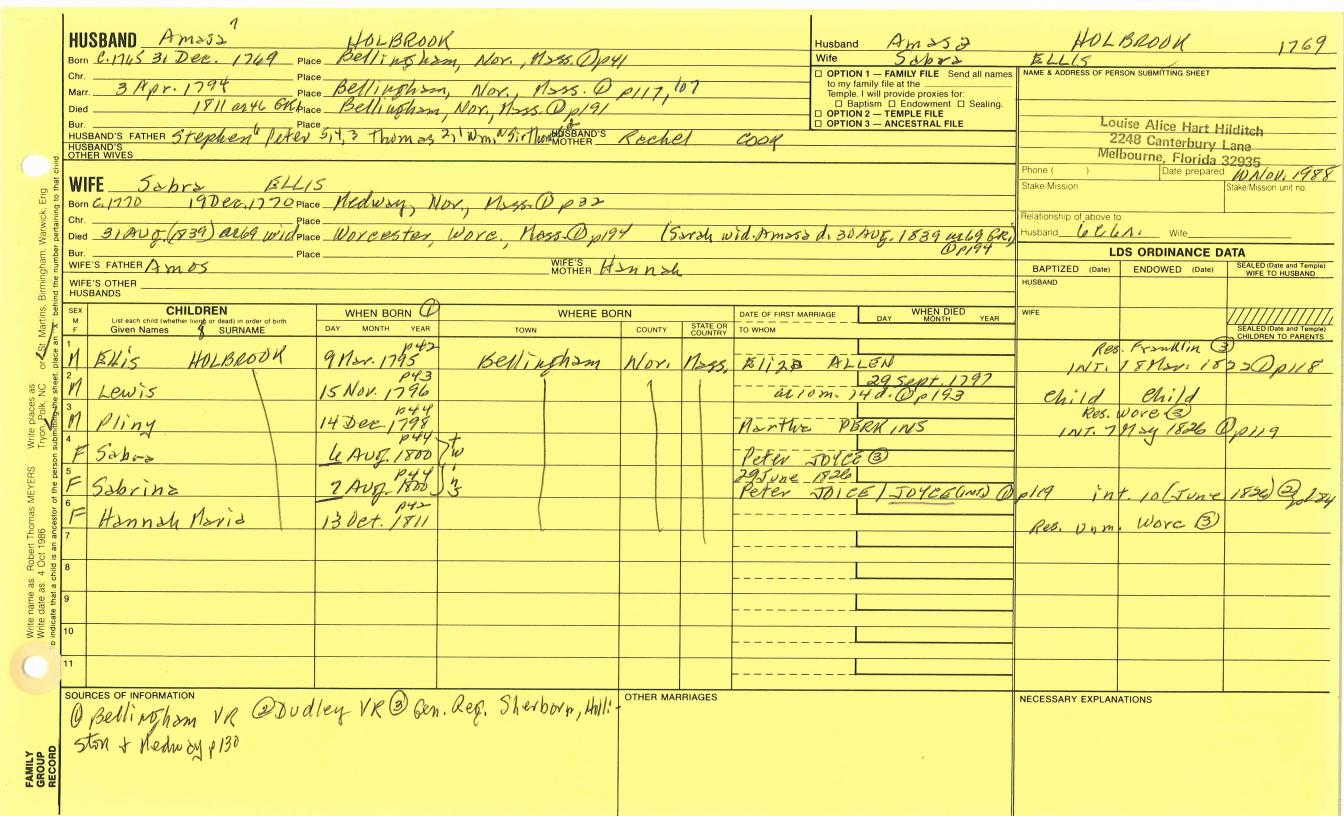 HUSBAND Amasa 7 HOLBROOK
Born C.1765 31 Dec. 1769 Place Bellingham, Nor., Mass. ① p41
Chr. Place
Marr. 3 Apr. 1794 Place Bellingham, Nor., Mass. ① p117, 107
Died 1811 ae46 GRI. Place Bellingham, Nor., Mass. ① p191
Bur. Place
HUSBAND'S FATHER Stephen 6 Peter 5,4,3 Thomas 2,1 Wm. N. HUSBAND'S MOTHER Rachel COOK
HUSBAND'S OTHER WIVES
WIFE Sabra ELLIS
Born C.1770 19 Dec. 1770 Place Medway, Nor., Mass. ① p32
Chr. Place
Died 31 AUG. (1839) ae69 wid Place Worcester, Worc., Mass. ① p194 (Sarah wid. Amasa d. 30 AUG. 1839 ae69 GRI,)
① p194
Bur. Place
WIFE'S FATHER Amos WIFE'S MOTHER Hannah
WIFE'S OTHER HUSBANDS
Husband Amasa HOLBROOK 1769
Wife Sabra ELLIS
☐ OPTION 1 — FAMILY FILE Send all names
to my family file at the
Temple. I will provide proxies for:
☐ Baptism ☐ Endowment ☐ Sealing.
☐ OPTION 2 — TEMPLE FILE
☐ OPTION 3 — ANCESTRAL FILE
NAME & ADDRESS OF PERSON SUBMITTING SHEET
Louise Alice Hart Hilditch
2248 Canterbury Lane
Melbourne, Florida 32935
Phone ( ) Date prepared 10 Nov. 1988
Stake/Mission Stake/Mission unit no.
Relationship of above to
Husband Wife
LDS ORDINANCE DATA
BAPTIZED (Date) ENDOWED (Date) SEALED (Date and Temple) WIFE TO HUSBAND
HUSBAND
WIFE
SEALED (Date and Temple) CHILDREN TO PARENTS
SEX M F CHILDREN WHEN BORN ① WHERE BORN DATE OF FIRST MARRIAGE WHEN DIED
List each child (whether living or dead) in order of birth
Given Names SURNAME DAY MONTH YEAR TOWN COUNTY STATE OR COUNTRY TO WHOM DAY MONTH YEAR
p42 Res. Franklin ③
1 M Ellis HOLBROOK 9 Mar. 1795 Bellingham Nor. Mass. Eliza ALLEN INT. 18 Mar. 1822 ① p118
p43 29 Sept. 1797
2 M Lewis 15 Nov. 1796 ae 10m. 14d. ① p193 Child Child
p44 Res. Worc ③
3 M Pliny 14 Dec. 1798 Martha PERKINS INT. 7 May 1826 ① p119
p44
4 F Sabra 6 Aug. 1800 tw Peter JOYCE ③
p44 29 June 1826
5 F Sabrina 7 Aug. 1800 ns Peter JOICE / JOYCE (int) ① p119 int. 10 (June 1826) ②
p42
6 F Hannah Maria 13 Oct. 1811 Res. Unm. Worc ③
7
8
9
10
11
SOURCES OF INFORMATION
① Bellingham VR ② Dudley VR ③ Gen. Reg. Sherborn, Holli-
ston & Medway p130
OTHER MARRIAGES
NECESSARY EXPLANATIONS
Write name as Robert Thomas MEYERS Write places as or St. Martins, Birmingham, Warwick, Eng
Write date as 4 Oct 1986 Tryon, Polk, NC
to indicate that a child is an ancestor of the person submitting the sheet, place an X behind the number pertaining to that child
FAMILY
GROUP
RECORD